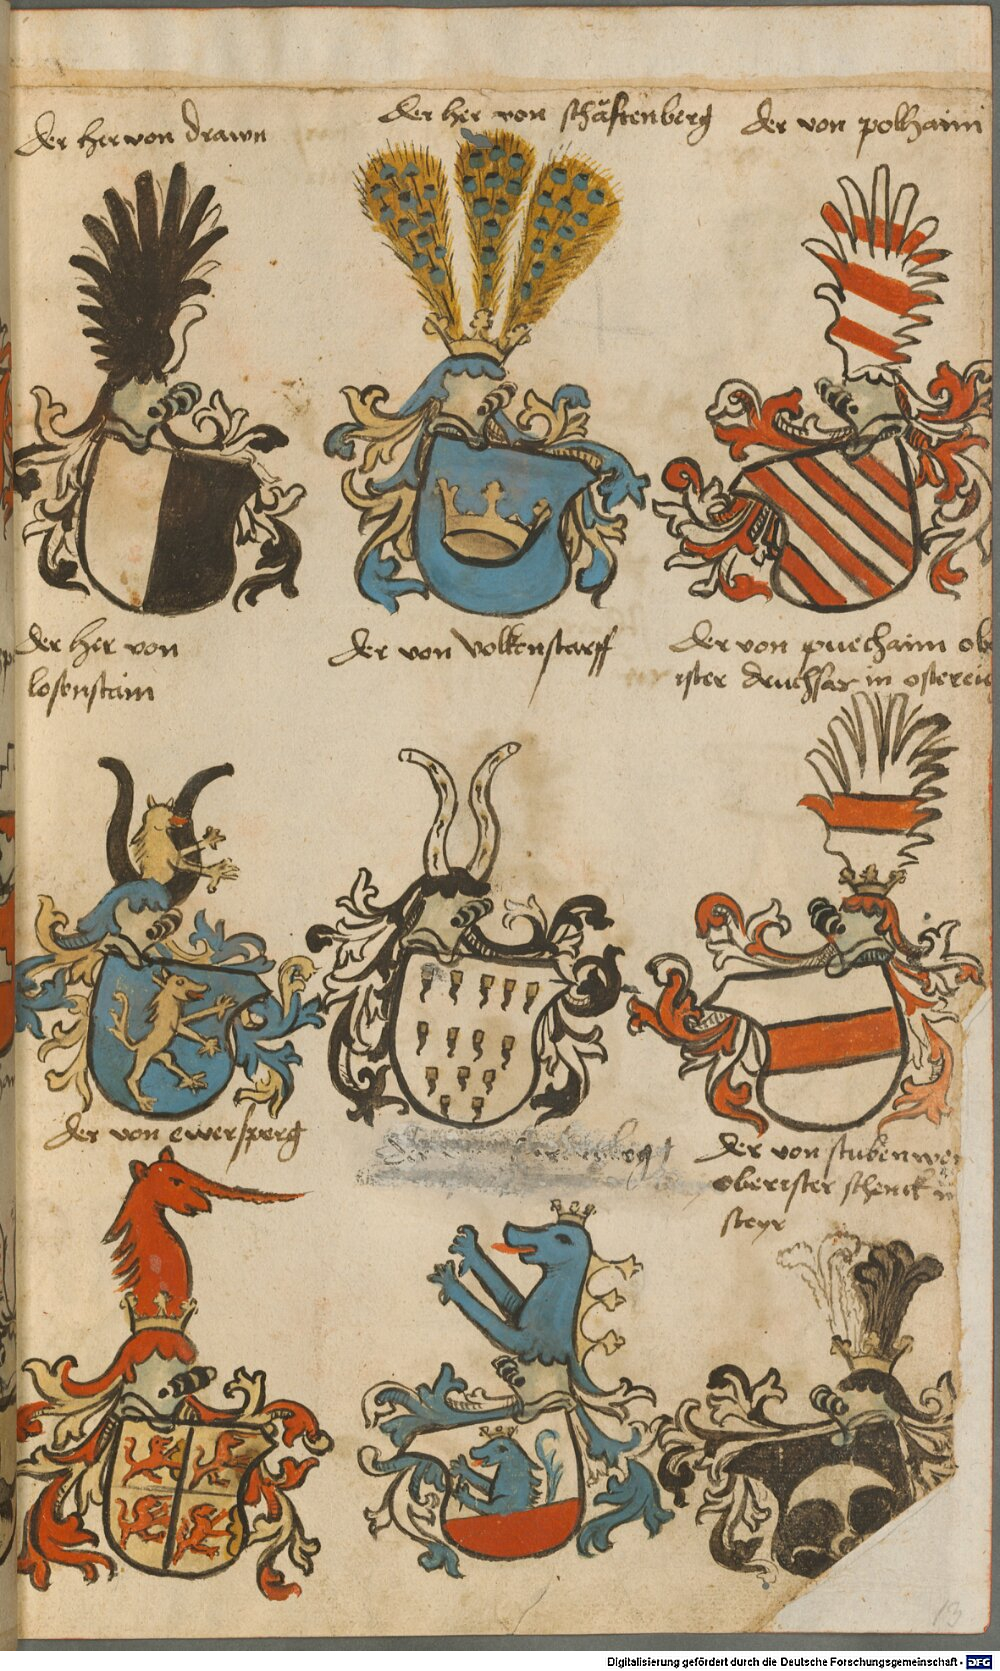 der her von drawn
der her von schäftenberg
der von polhaim
der her von
losenstain
der von volkenstarff
der von puechaim obe
rister druchsas in ostereic
der von ewersperg
der von stubenwer
oberister schenck in
steyr
13
Digitalisierung gefördert durch die Deutsche Forschungsgemeinschaft - DFG